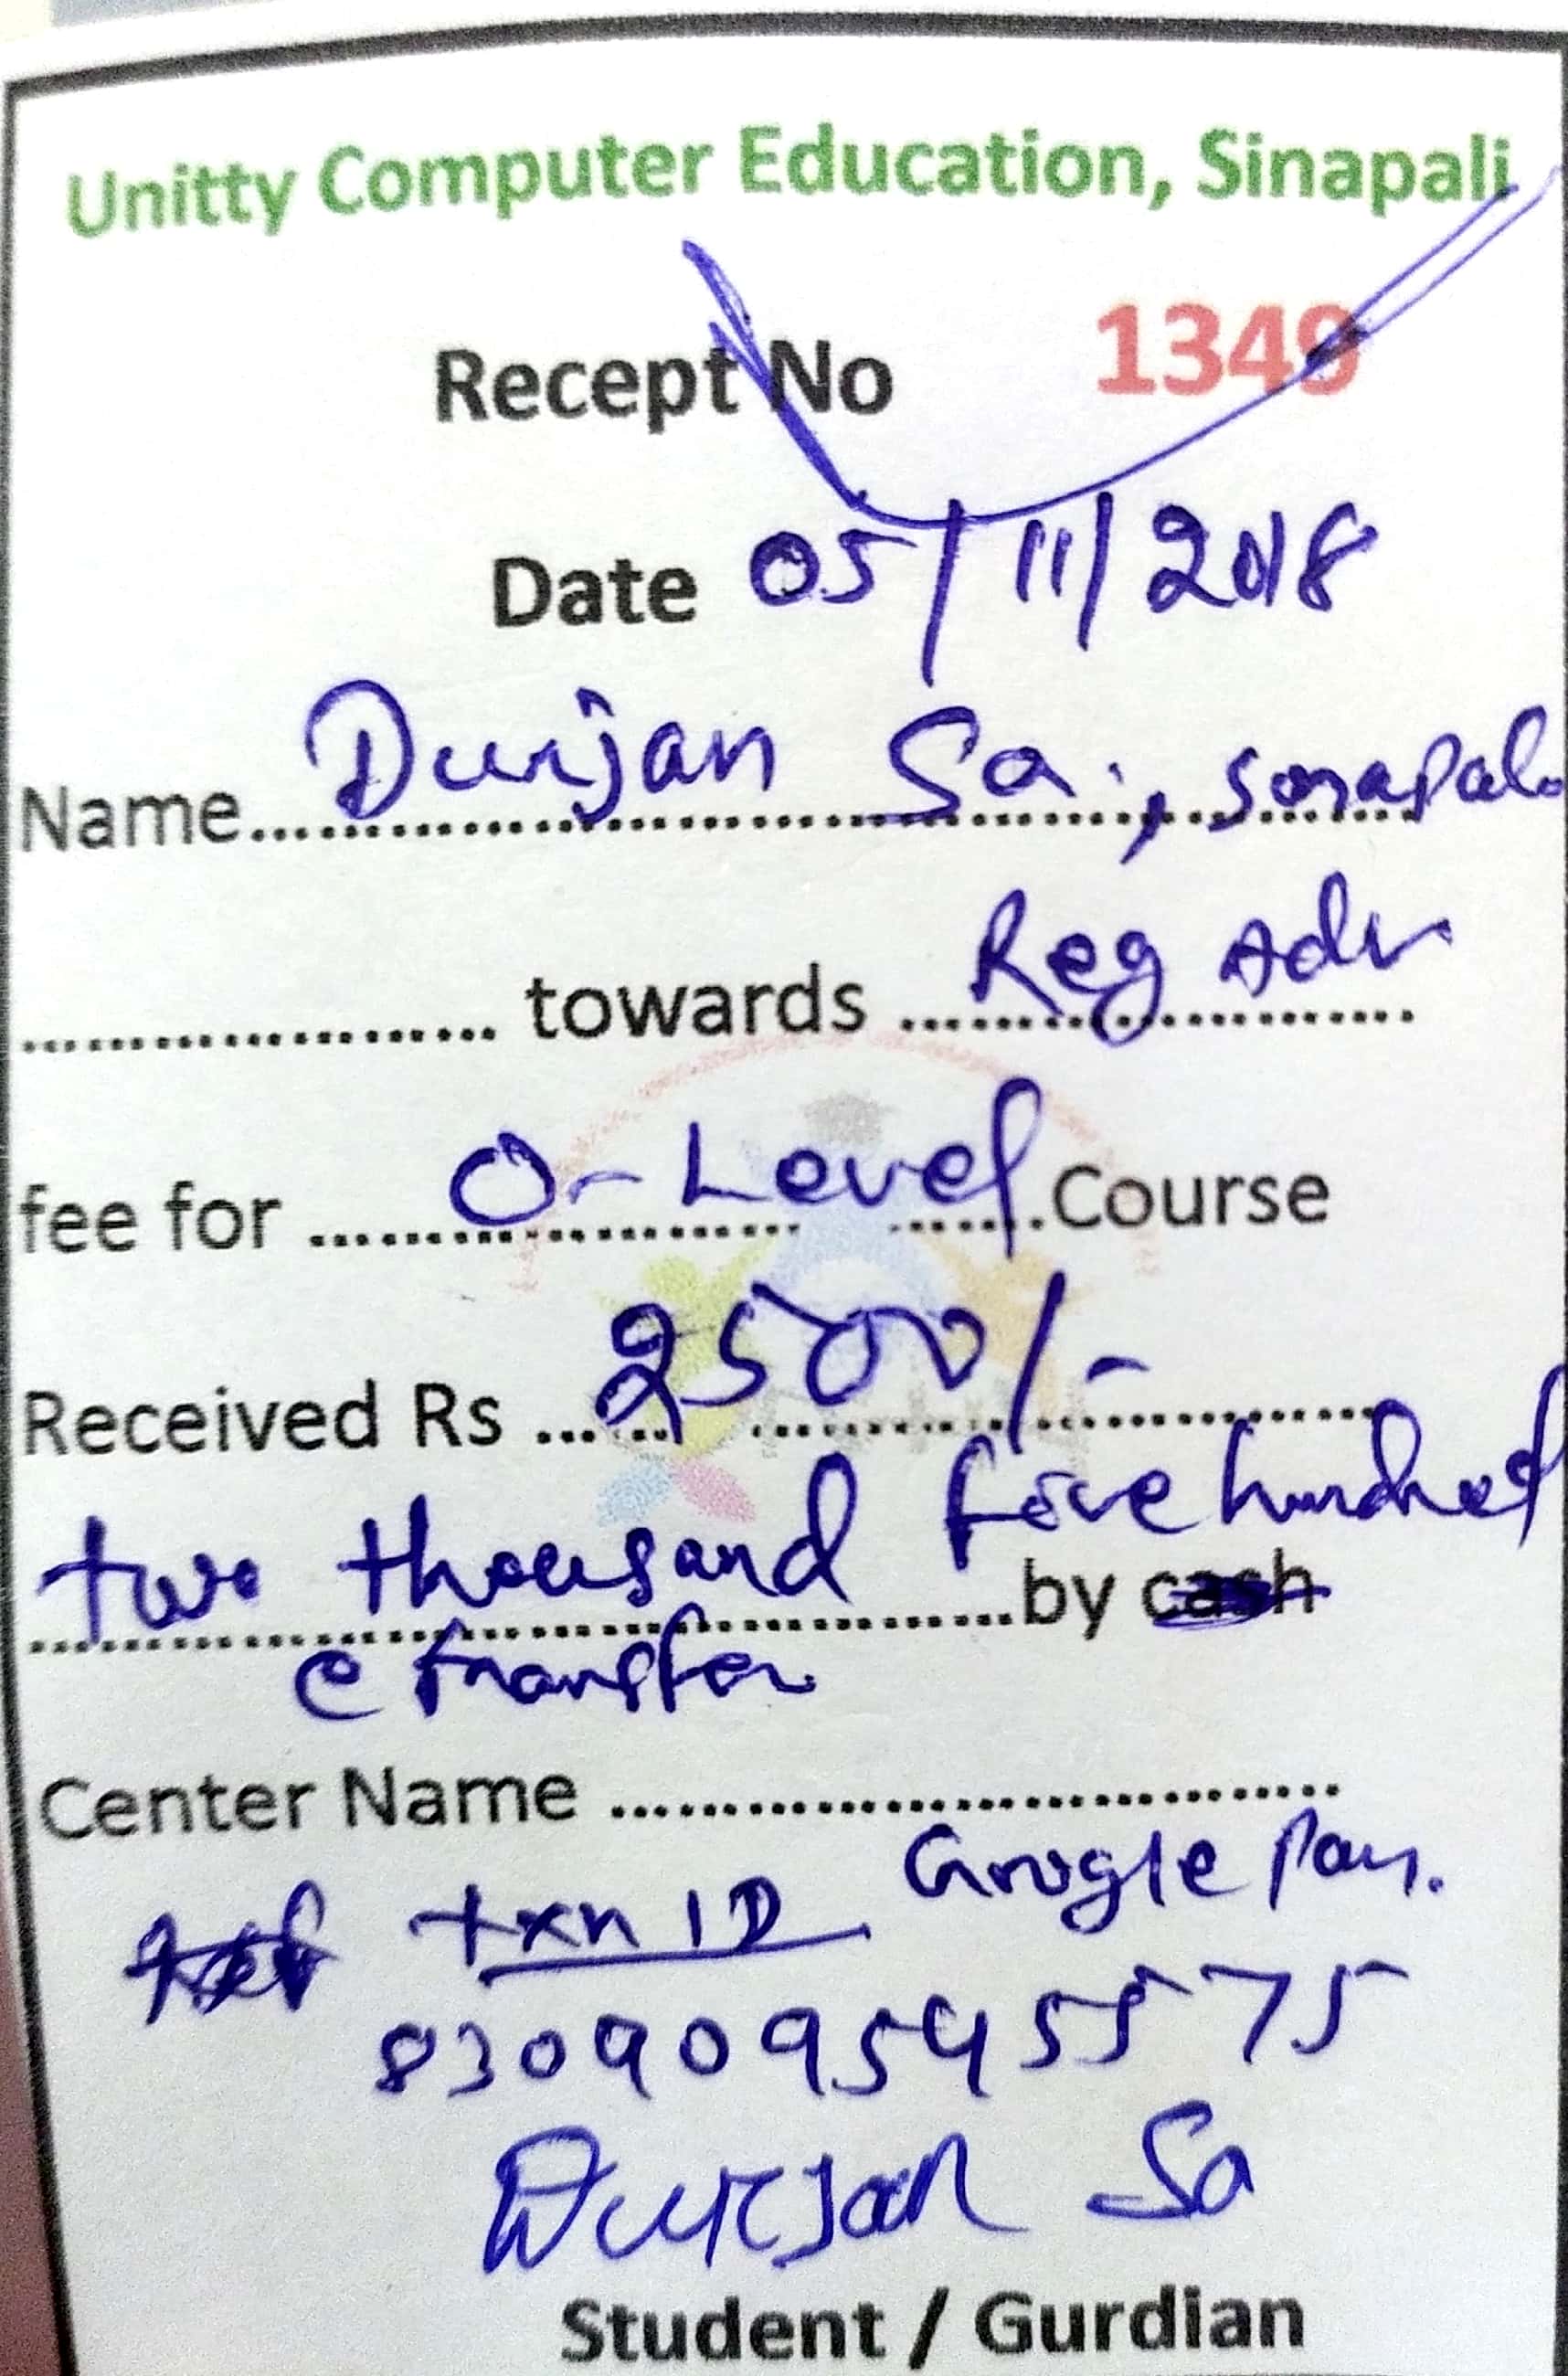 Unitty Computer Education, Sinapali
Recept No 1349
Date 05/11/2018
Name Durjan Sa., Sinapali
towards Reg Adv
fee for O-Level Course
Received Rs 2500/-
two thousand five hundred
by cash
e transfer
Center Name
txn ID Google Pay.
830909545575
Durjan Sa
Student / Gurdian